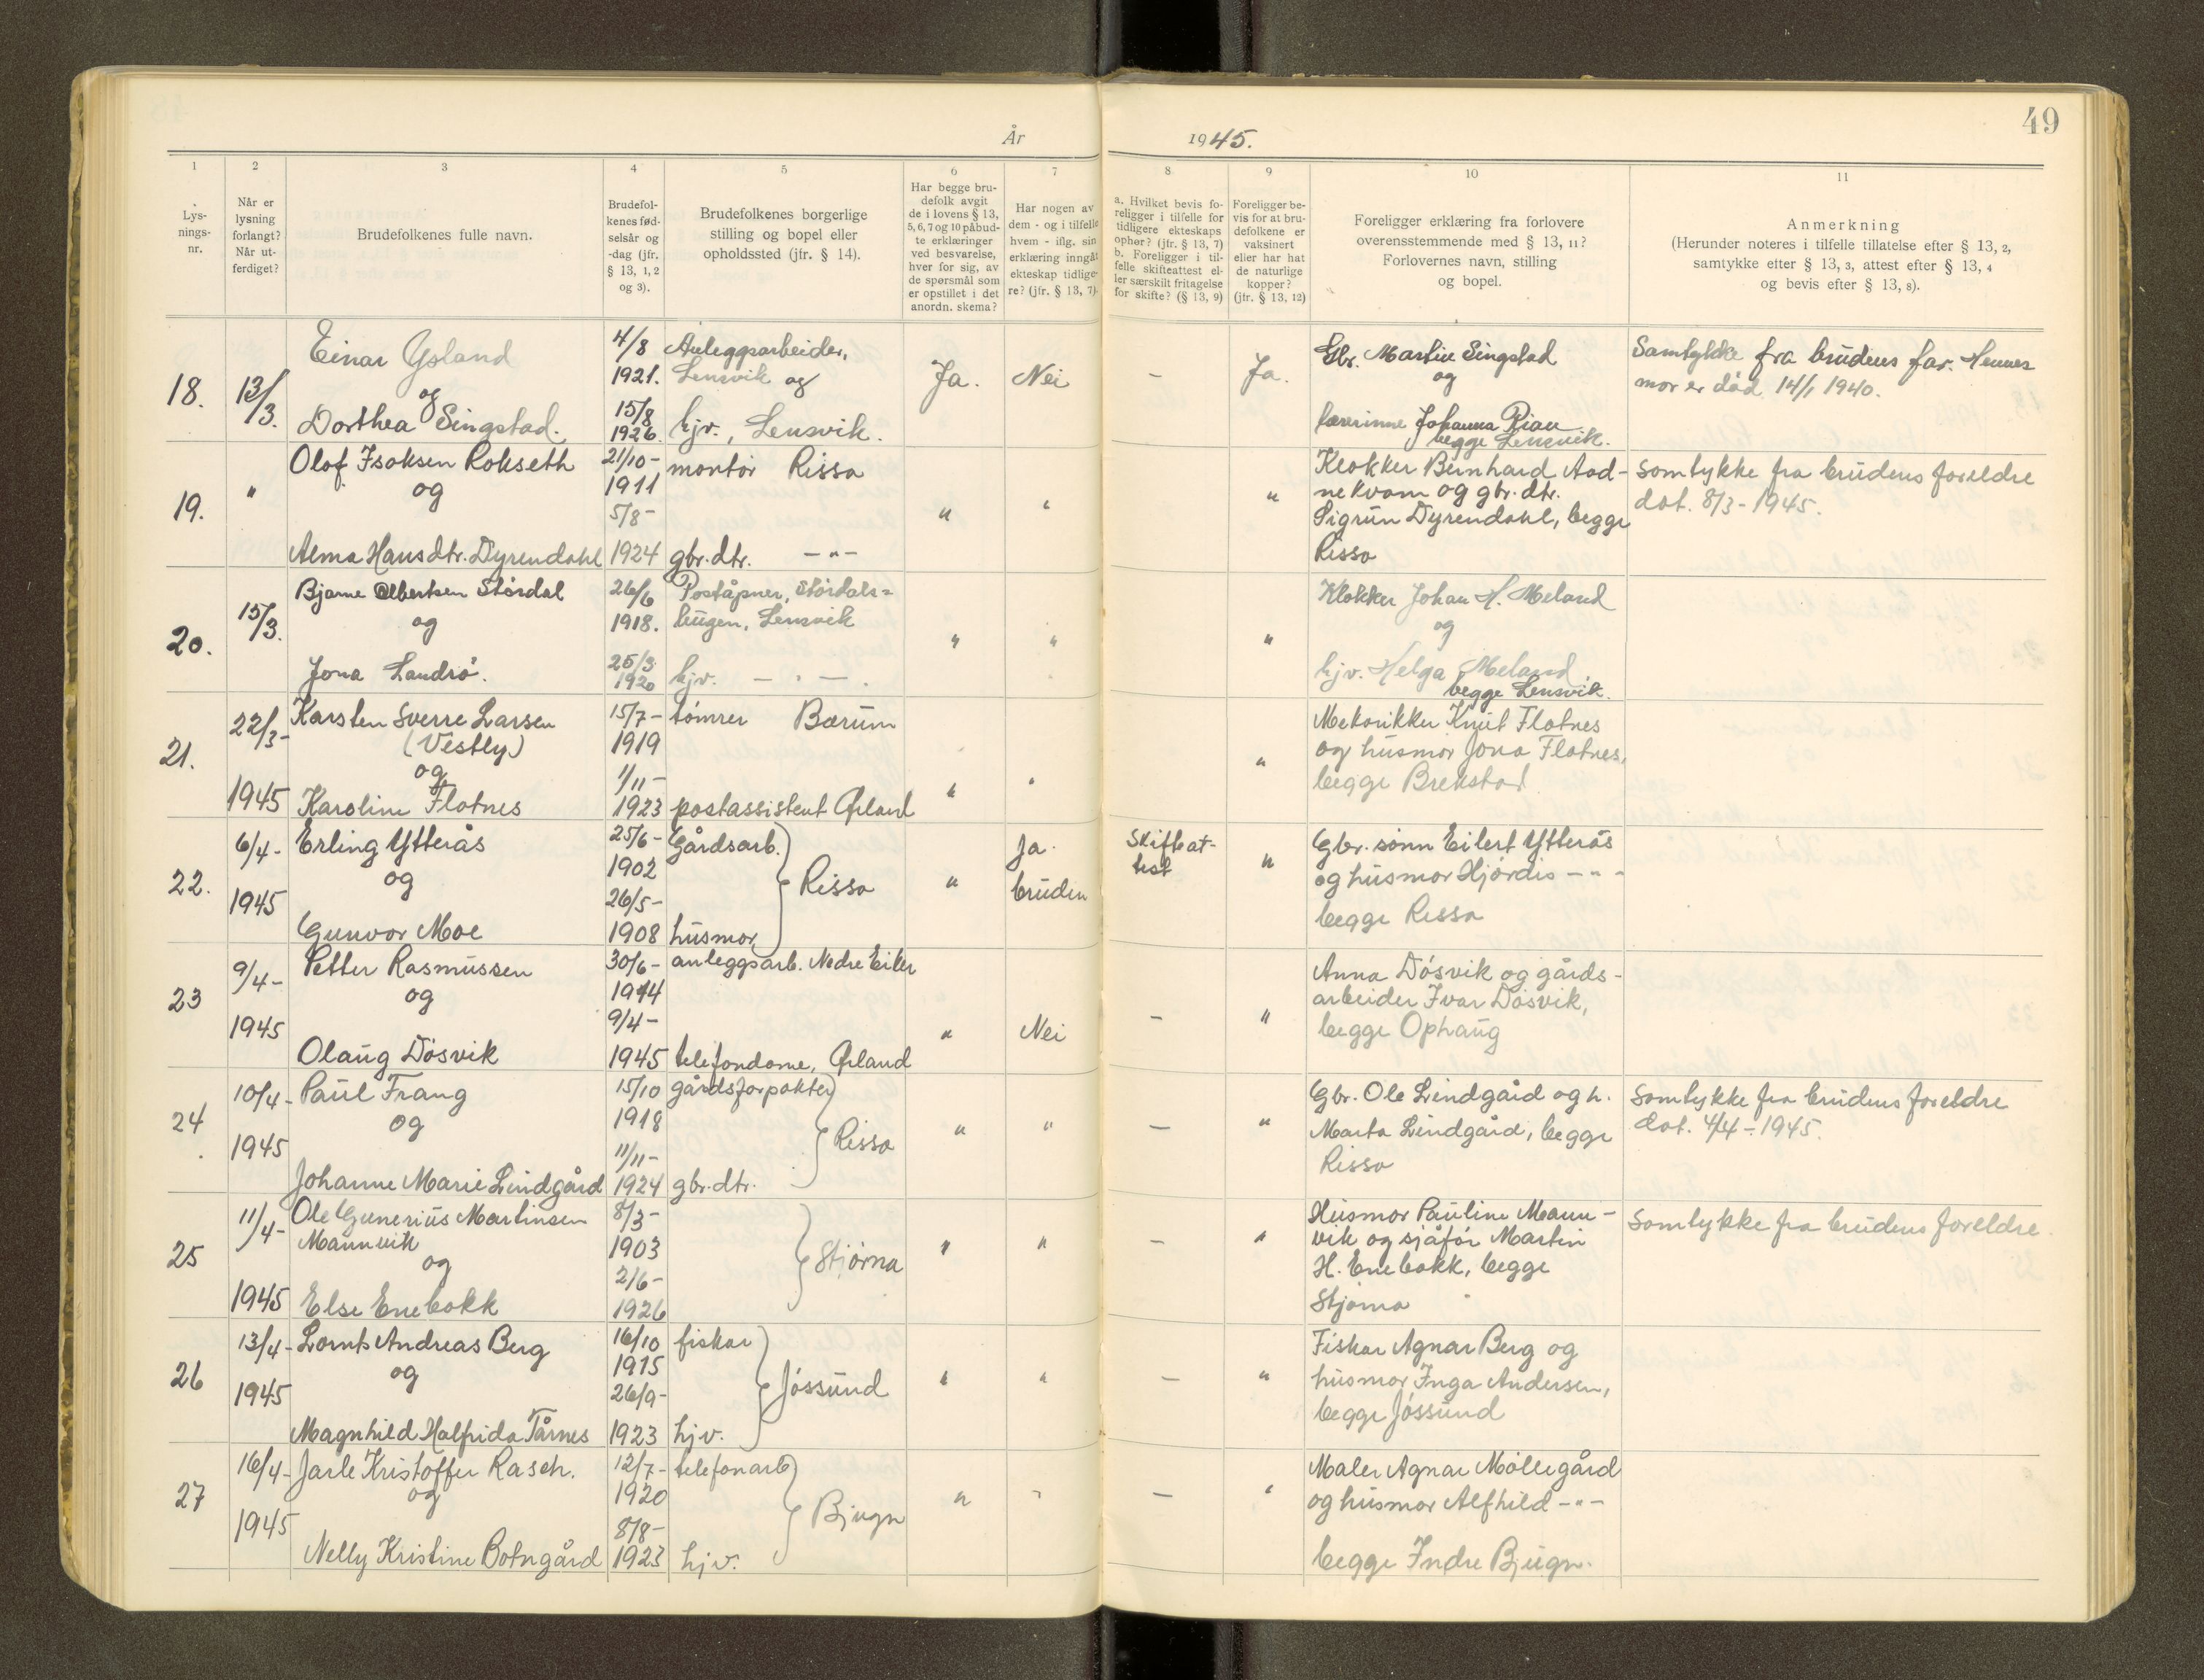 49
År 1945.
1
2
3
4
5
6
7
8
9
10
11
Lys-
nings-
nr.
Når er
lysning
forlangt?
Når ut-
ferdiget?
Brudefolkenes fulle navn.
Brudefol-
kenes fød-
selsår og
-dag (jfr.
§ 13, 1, 2
og 3).
Brudefolkenes borgerlige
stilling og bopel eller
opholdssted (jfr. § 14).
Har begge bru-
defolk avgit
de i lovens § 13,
5, 6, 7 og 10 påbud-
te erklæringer
ved besvarelse,
hver for sig, av
de spørsmål som
er opstillet i det
anordn. skema?
Har nogen av
dem - og i tilfelle
hvem - iflg. sin
erklæring inngåt
ekteskap tidlige-
re? (jfr. § 13, 7)
a. Hvilket bevis fo-
religger i tilfelle for
tidligere ekteskaps
ophør? (jfr. § 13, 7)
b. Foreligger i til-
felle skifteattest el-
ler særskilt fritagelse
for skifte? (§ 13, 9)
Foreligger be-
vis for at bru-
defolkene er
vaksinert
eller har hat
de naturlige
kopper?
(jfr. § 13, 12)
Foreligger erklæring fra forlovere
overensstemmende med § 13, 11?
Forlovernes navn, stilling
og bopel.
Anmerkning
(Herunder noteres i tilfelle tillatelse efter § 13, 2,
samtykke efter § 13, 3, attest efter § 13, 4
og bevis efter § 13, 8).
18.
13/3.
Einar Ysland
og
Dorthea Singstad.
4/8
1921.
15/8
1926.
Anleggsarbeider,
Lensvik og
hjv., Lensvik.
Ja.
Nei
–
Ja.
Gbr. Martin Singstad
og
lærerinne Johanna Rian
begge Lensvik.
Samtykke fra brudens far. Hennes
mor er død 14/1 1940.
19.
"
Olof Isaksen Rokseth
og
Alma Hansdtr. Dyrendahl
21/10-
1911
5/8-
1924
montør Rissa
gbr. dtr. –"–
"
"
"
Klokker Bernhard Aad-
nekvam og gbr. dtr.
Sigrun Dyrendahl, begge
Rissa
Samtykke fra brudens foreldre
dat. 8/3-1945.
20.
15/3.
Bjarne Albertsen Størdal
og
Jona Landrø.
26/6
1918.
25/3
1920
Poståpner, Størdals-
haugen, Lensvik
hjv. – " –.
"
"
"
Klokker Johan H. Meland
og
hjv. Helga Meland
begge Lensvik.
21.
22/3-
1945
Karsten Sverre Larsen
(Vestly)
og
Karoline Flatnes
15/7-
1919
1/11-
1923
tømrer Bærum
postassistent Ørland
"
"
"
Mekanikker Knut Flatnes
og husmor Jona Flatnes,
begge Brekstad
22.
6/4-
1945
Erling Ytterås
og
Gunvor Moe
25/6-
1902
26/5-
1908
Gårdsarb.
Rissa
husmor
"
Ja.
bruden
Skifteat-
test
"
Gbr. sønn Eilert Ytterås
og husmor Hjørdis –"–
begge Rissa
23
9/4-
1945
Petter Rasmussen
og
Olaug Døsvik
30/6-
1914
9/4-
1945
anleggsarb. Nedre Eiker
telefondame, Ørland
"
Nei
–
"
Anna Døsvik og gårds-
arbeider Ivar Døsvik,
begge Ophaug
24
10/4-
1945
Paul Frang
og
Johanne Marie Lindgård
15/10
1918
11/11-
1924
gårdsforpakter
Rissa
gbr. dtr.
"
"
–
"
Gbr. Ole Lindgård og h.
Marta Lindgård, begge
Rissa
Samtykke fra brudens foreldre
dat. 4/4-1945.
25
11/4-
1945
Ole Gunerius Martinsen
Mannvik
og
Else Enebakk
8/3-
1903
2/6-
1926
Stjørna
"
"
–
"
Husmor Pauline Mann-
vik og sjåfør Martin
H. Enebakk, begge
Stjørna
Samtykke fra brudens foreldre.
26
13/4-
1945
Lornts Andreas Berg
og
Magnhild Halfrida Tårnes
16/10
1915
26/9-
1923
fisker
Jøssund
hjv.
"
"
–
"
Fisker Agnar Berg og
husmor Inga Andersen,
begge Jøssund
27
16/4-
1945
Jarle Kristoffer Rasch.
og
Nelly Kristine Botngård
12/7-
1920
8/8-
1923
telefonarb
Bjugn
hjv.
"
"
–
"
Maler Agnar Møllegård
og husmor Alfhild –"–
begge Indre Bjugn.